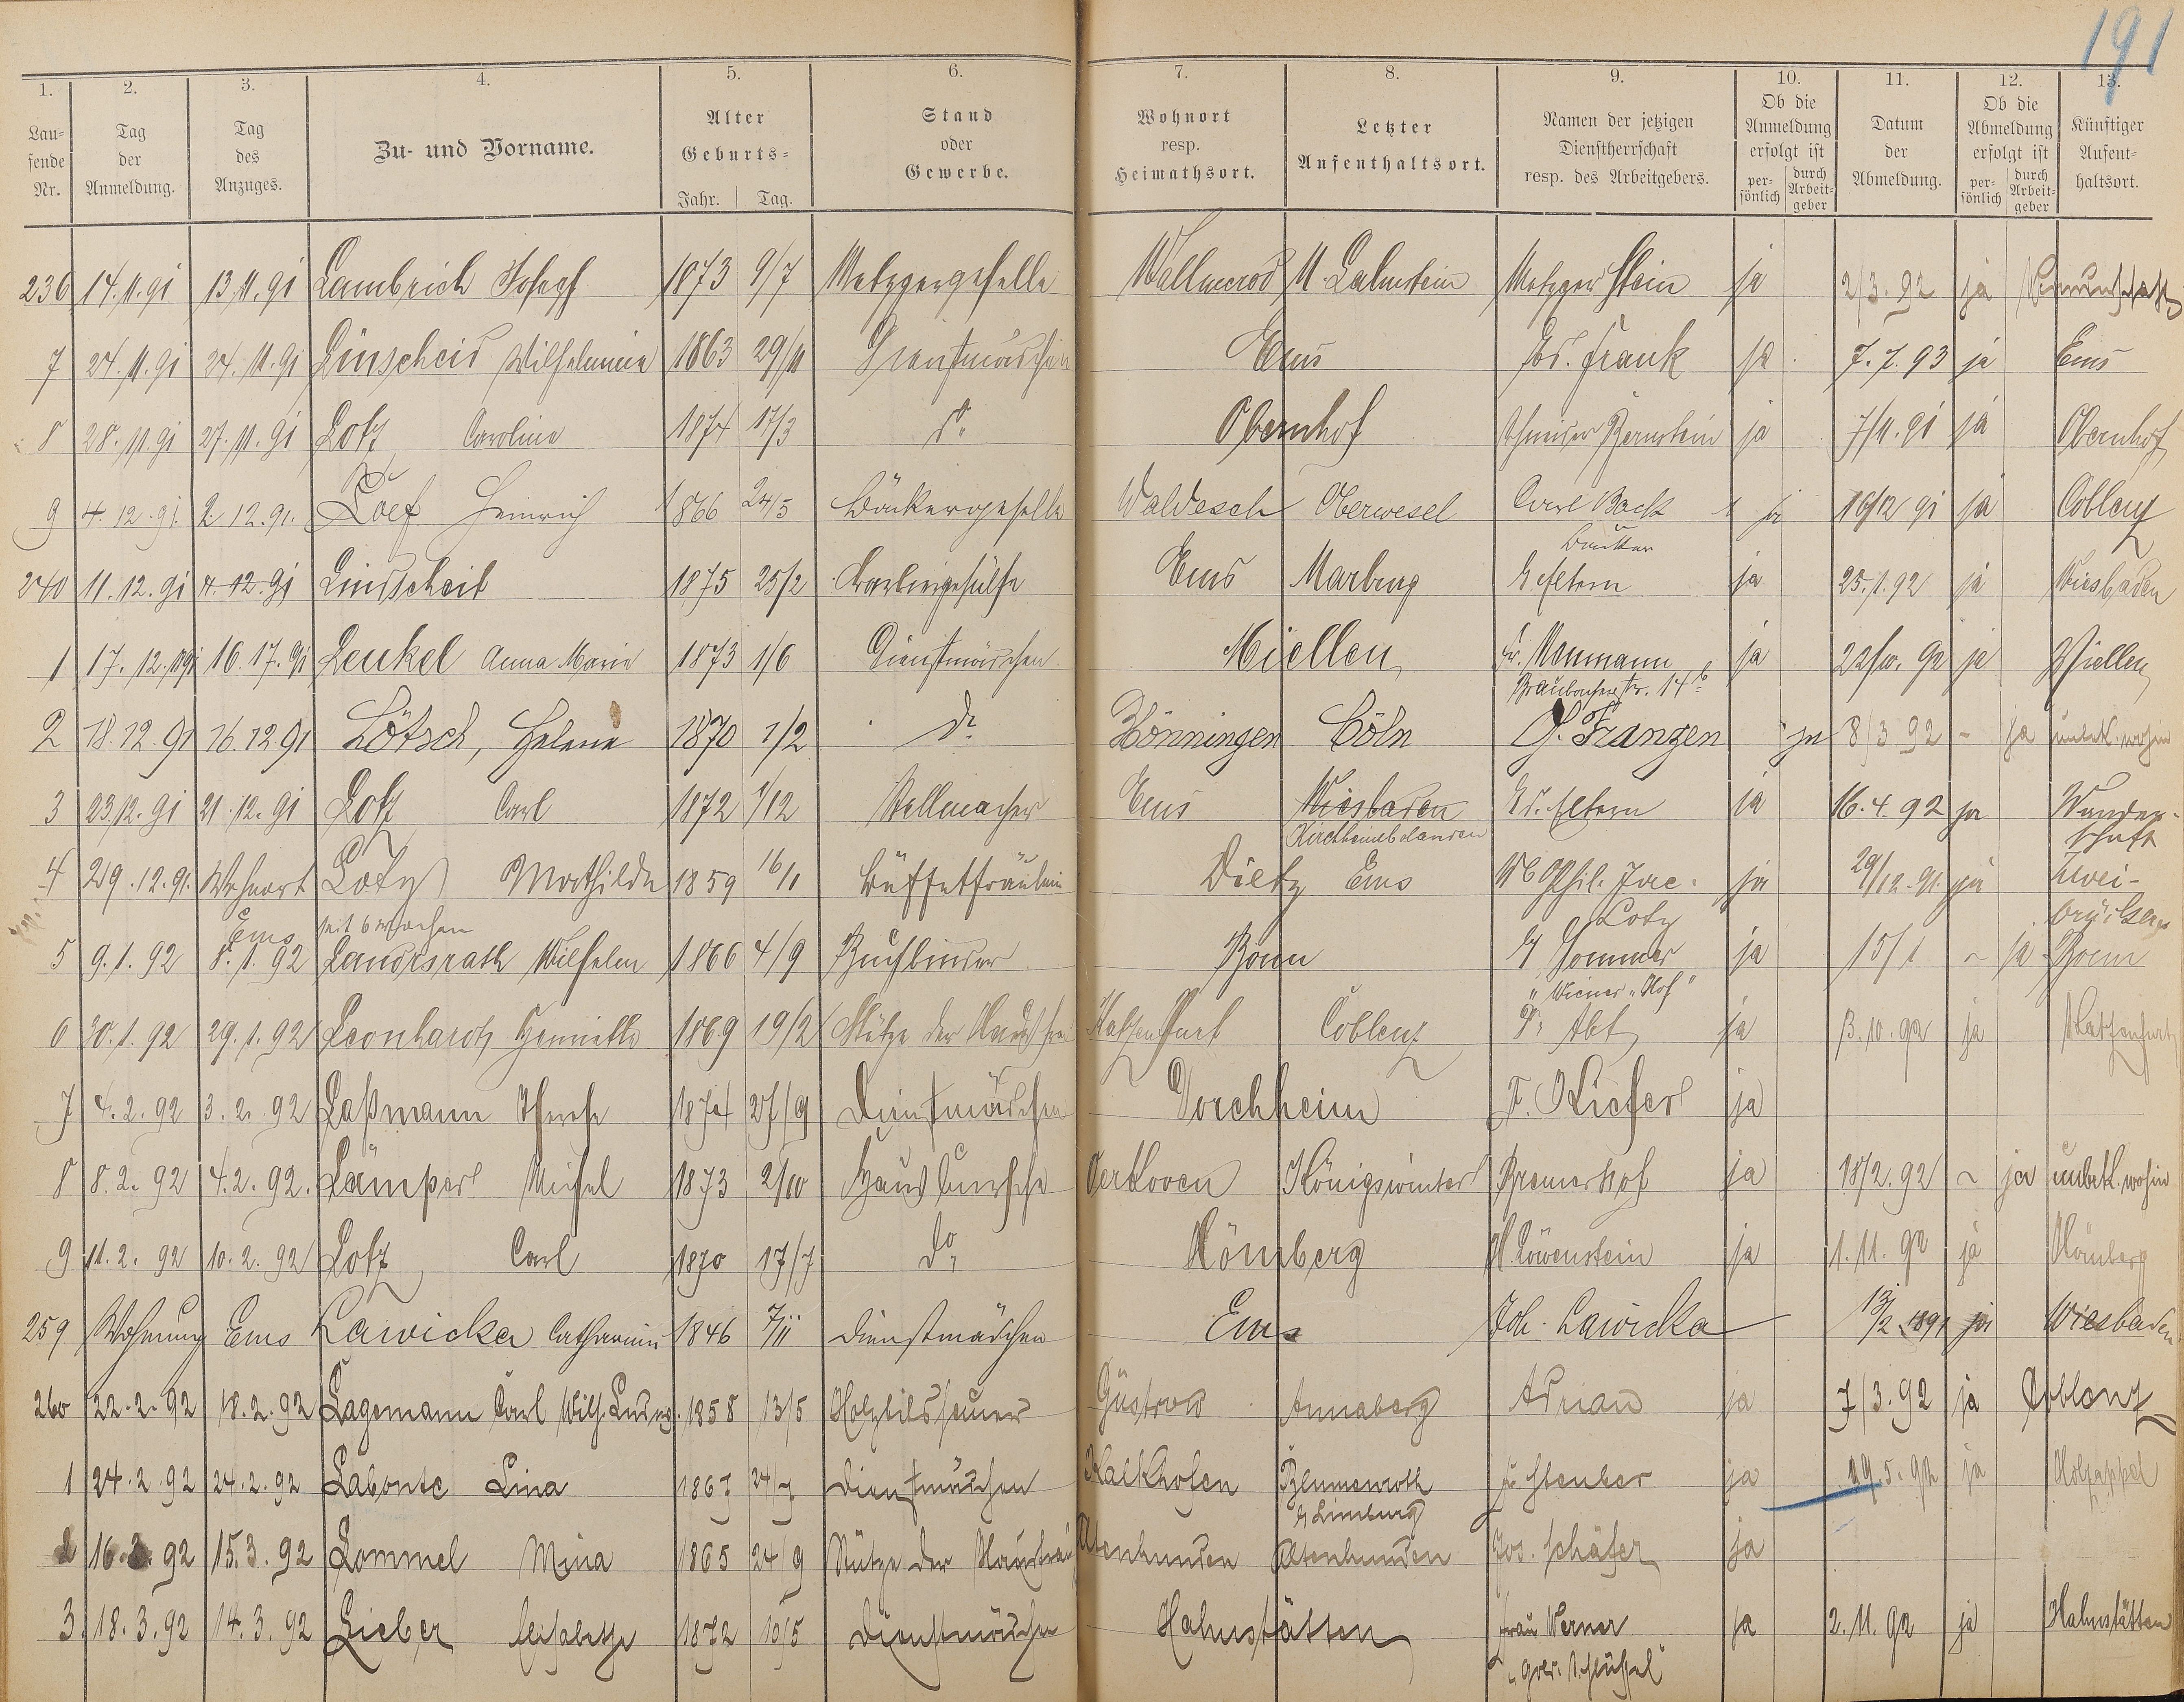 191
1. 2. 3. 4. 5. 6. 7. 8. 9. 10. 11. 12. 13.
Lau=
fende
Nr.
Tag
der
Anmeldung.
Tag
des
Anzuges.
Zu- und Vorname.
Alter
Geburts=
Jahr. Tag.
Stand
oder
Gewerbe.
Wohnort
resp.
Heimathsort.
Letzter
Aufenthaltsort.
Namen der jetzigen
Dienstherrschaft
resp. des Arbeitgebers.
Ob die
Anmeldung
erfolgt ist
per=
sönlich
durch
Arbeit=
geber
Datum
der
Abmeldung.
Ob die
Abmeldung
erfolgt ist
per=
sönlich
durch
Arbeit=
geber
Künftiger
Aufent=
haltsort.
236 14.11.91 13.11.91 Lambrich Joseph 1873 9/7 Metzgergeselle Wallmerod N. Lahnstein Metzger Stein ja 2/3.92 ja
7 24.11.91 24.11.91 Linscheid Wilhelmine 1863 29/11 Dienstmädchen Ems Jos. Frank ja 7.7.93 ja Ems
8 28.11.91 27.11.91 Lotz Caroline 1874 17/3 do Obernhof Bernstein ja 7/11.91 ja Obernhof
9 4.12.91. 2.12.91. Löf Heinrich 1866 24/5 Bäckergeselle Waldesch Oberwesel Carl Back ja 16/12 91 ja Coblenz
240 11.12.91 4.12.91 Linscheid 1875 25/2 Barbiergehülfe Ems Marburg Eltern ja 25.1.92 ja Wiesbaden
1 17.12.91 16.17.91 Lenkel Anna Marie 1873 1/6 Dienstmädchen Miellen ja 22/10.92 ja Miellen
Braubacherstr. 14
2 18.12.91 16.12.91 Lötsch, Helene 1870 1/2 do Hönningen Cöln G. Franzen ja 8/3 92 - ja unbek. wohin
3 23.12.91 21.12.91 Lotz Carl 1872 1/12 Stellmacher Ems Wiesbaden Eltern ja 16.4.92 ja Wander-
Kirchheimbolanden schaft
4 29.12.91. Wohnort Loty Mathilde 1859 16/11 Büffetfräulein Dietz Ems Phil. ja 29/12.91. ja Zwei-
Ems seit 6 Wochen Loty brücken
5 9.1.92 8.1.92 Landsrath Wilhelm 1866 4/9 Buchbinder Bonn Sommer ja 15/1 - ja Bonn
"Wiener Hof"
6 30.1.92 29.1.92 Leonhardt Henriette 1869 19/2 Stütze der Hausfrau Katzenfurt Coblenz Abt ja 3.10.92 ja Katzenfurt
7 4.2.92 3.2.92 Laßmann Therese 1874 27/9 Dienstmädchen Horchheim F. Kiefer ja
8 8.2.92 4.2.92. Lämper Michel 1873 2/10 Hausbursche Verkoven Königswinter Bremerhof ja 18/2.92 - ja unbek. wohin
9 11.2.92 10.2.92 Lotz Carl 1870 17/7 do Hömberg H. Löwenstein ja 1.11.92 ja Hömberg
259 Wohnung Ems Lawicka Catharina 1846 7/11 Dienstmädchen Ems Joh. Lawicka 13/2 1891 ja Wiesbaden
260 22.2.92 18.2.92 Lagemann Carl Wilh. Ludwg. 1858 13/5 Holzbildhauer Güstrow Annaberg Adrian ja 7/3.92 ja Coblenz
1 24.2.92 24.2.92 Labonte Lina 1867 24/7 Dienstmädchen Kalkhofen Blumenroth ja 19.5.92 ja Holzappel
b Limburg
2 16.3.92 15.3.92 Lommel Mina 1865 24/9 Stütze der Hausfrau Altenhunden Altenhunden Jos. Schäfer ja
3. 18.3.92 14.3.92 Lieber Elisabethe 1872 10/5 Dienstmädchen Hahnstätten Frau Werner ja 2.11.92 ja Hahnstätten
"gold. Schlüssel"